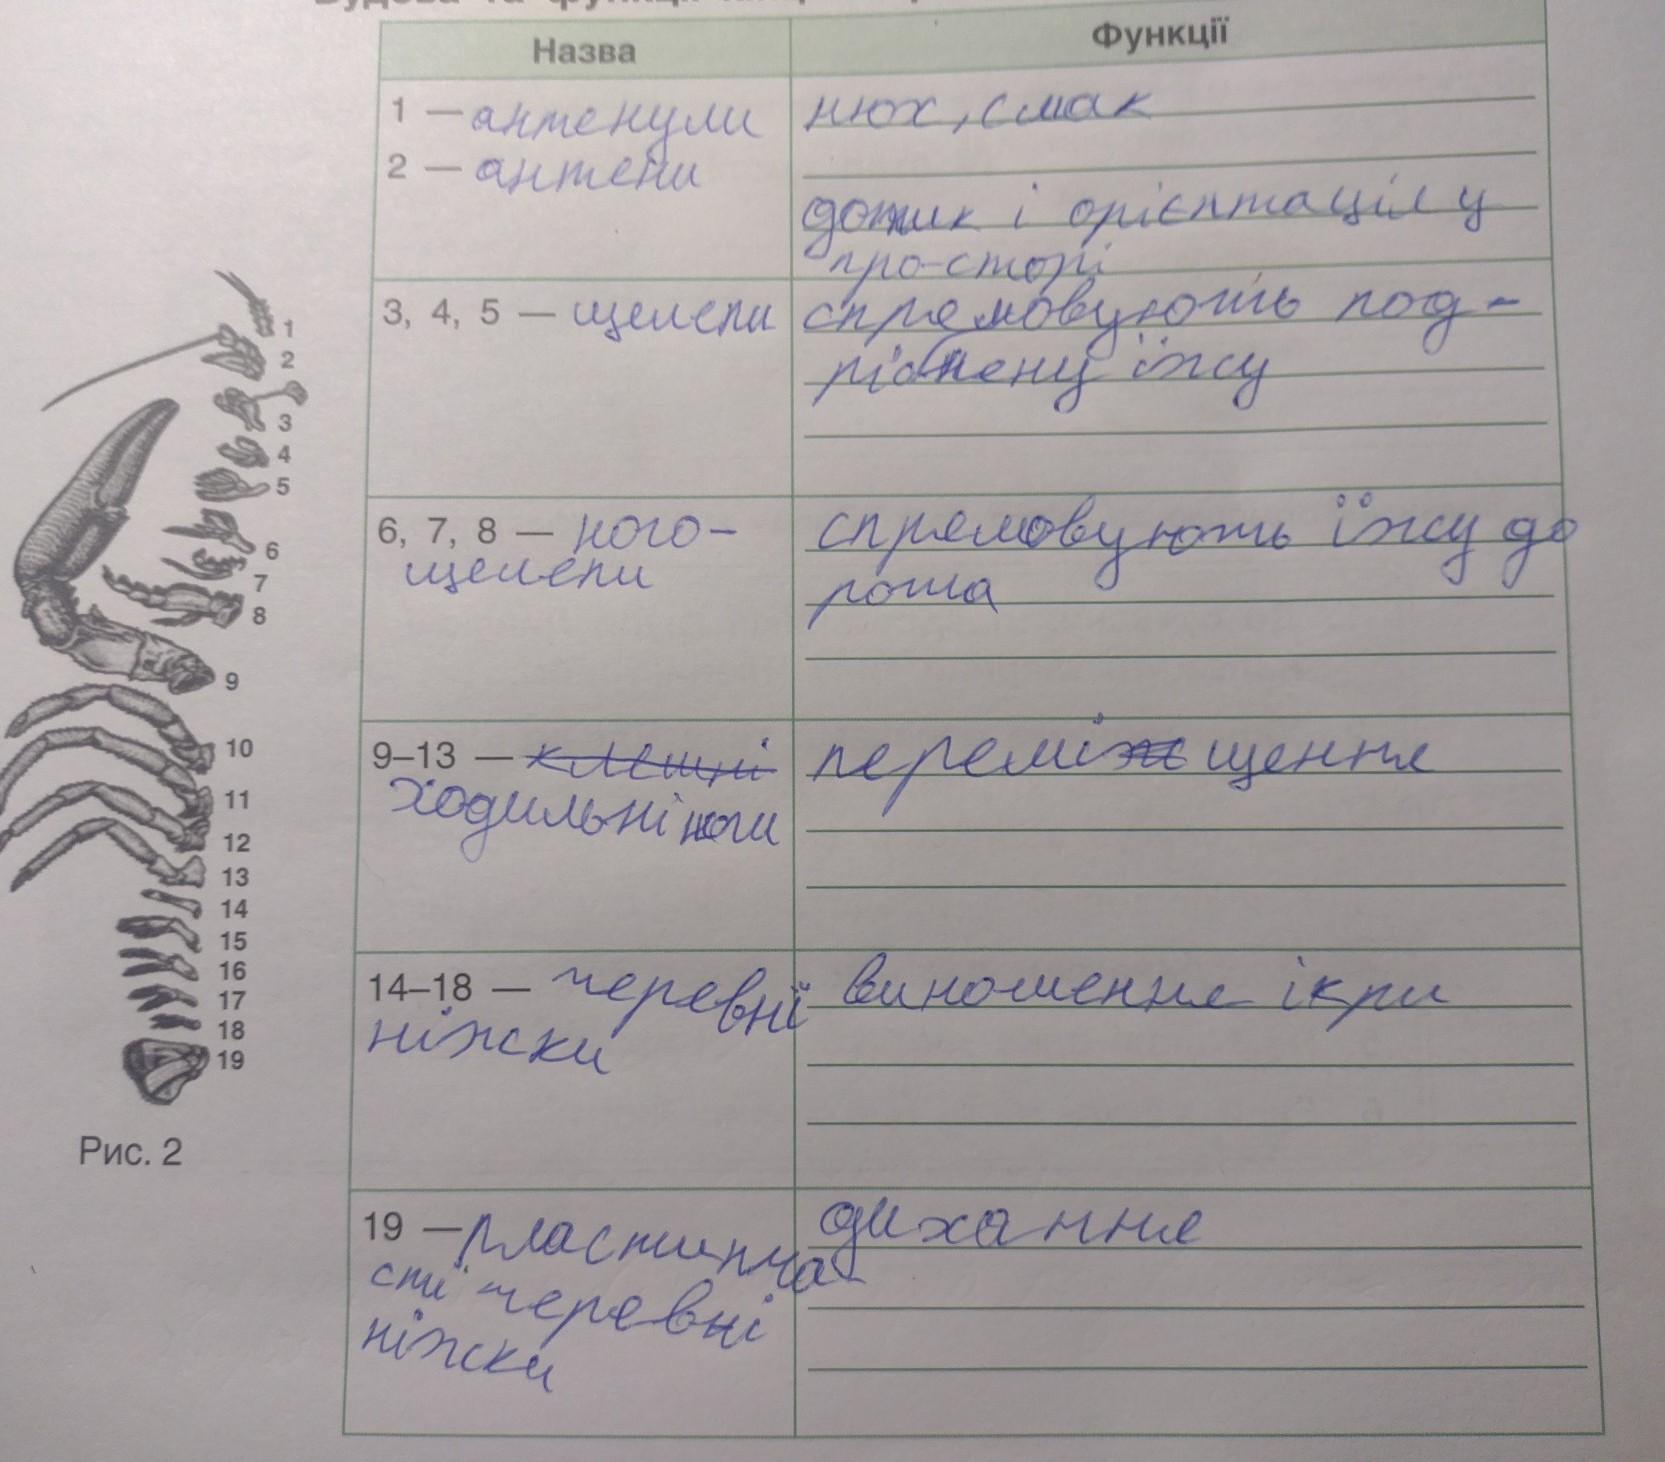 Назва
Функції
1 — антенули
нюх, смак
2 — антени
дотик і орієнтація у
про-сторі
3, 4, 5 — щелепи
спрямовують под-
рібнену їжу
6, 7, 8 — ного-
щелепи
спрямовують їжу до
рота
9–13 — клешні
ходильні ноги
переміщення
14–18 — черевні
ніжки
виношення ікри
19 — пластинча-
сті черевні
ніжки
дихання
1
2
3
4
5
6
7
8
9
10
11
12
13
14
15
16
17
18
19
Рис. 2